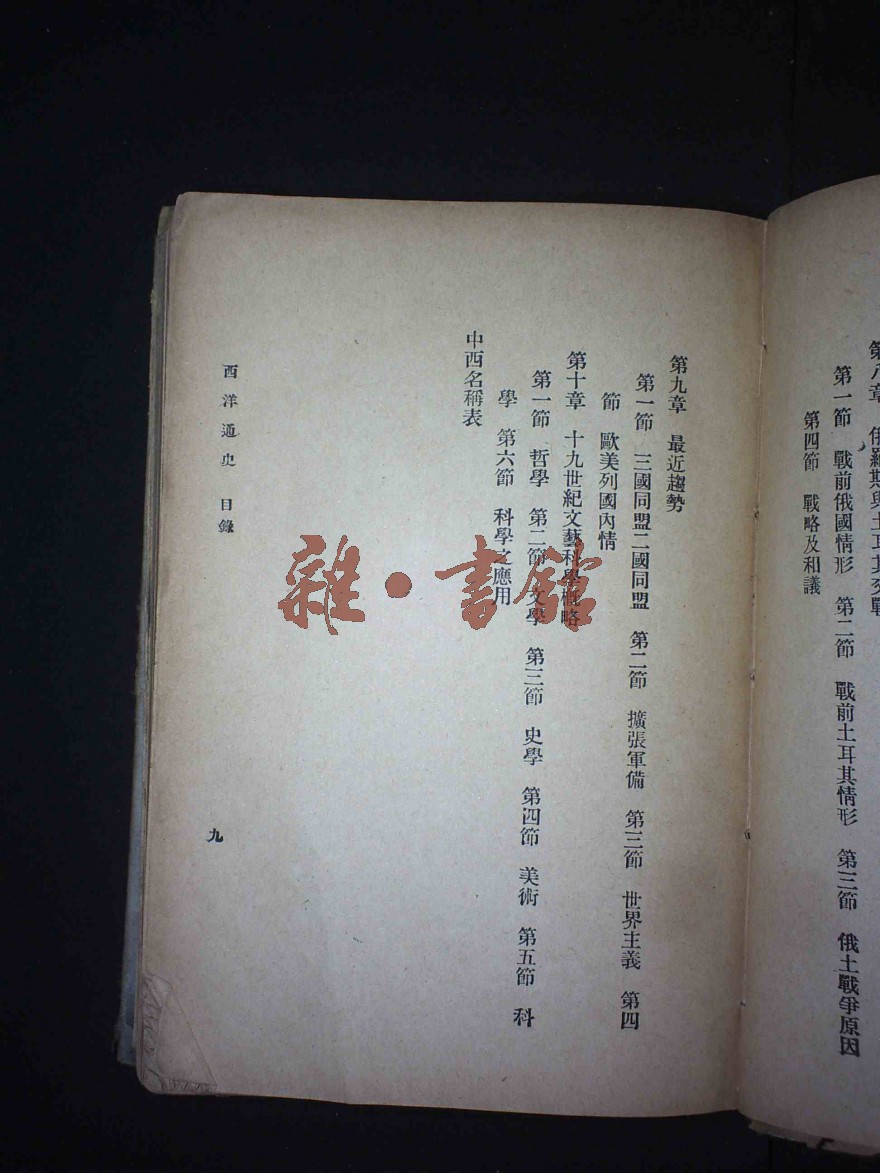 第八章　俄羅斯與土耳其交戰
第一節　戰前俄國情形　第二節　戰前土耳其情形　第三節　俄土戰爭原因
第四節　戰略及和議
第九章　最近趨勢
第一節　三國同盟二國同盟　第二節　擴張軍備　第三節　世界主義　第四
節　歐美列國內情
第十章　十九世紀文藝科學概略
第一節　哲學　第二節　文學　第三節　史學　第四節　美術　第五節　科
學　第六節　科學之應用
中西名稱表
西洋通史　目錄
九
雜·書館